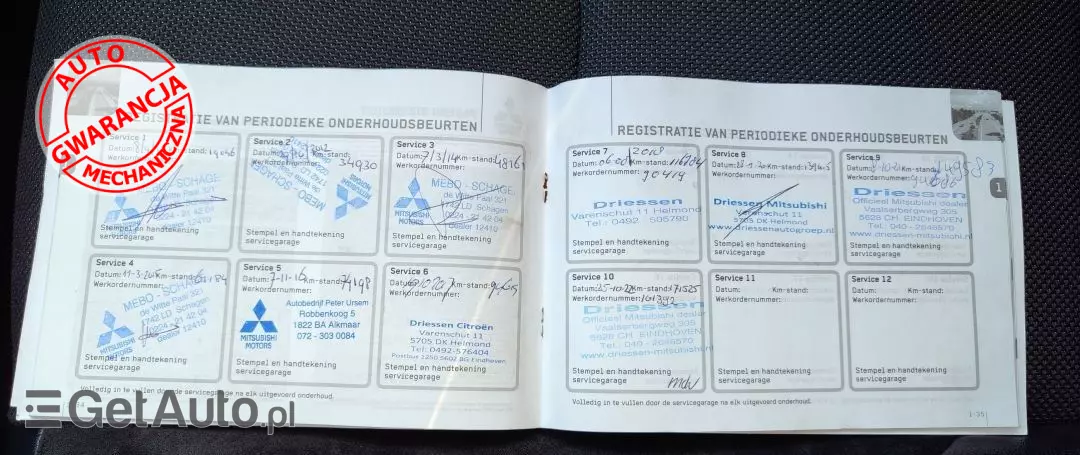 AUTO
GWARANCJA
MECHANICZNA
REGISTRATIE VAN PERIODIEKE ONDERHOUDSBEURTEN
Service 1
Datum: Km-stand: 19096
Werkordernummer:
de Witte Paal 321
0224 - 21 42 04
dealer 12410
Stempel en handtekening
servicegarage
Service 2
Datum: 2012 Km-stand:
Werkordernummer: 34930
MEBO - SCHAGE
de Witte Paal 321
MITSUBISHI
MOTORS
Stempel en handtekening
servicegarage
Service 3
Datum: 7/3/14 Km-stand: 48161
Werkordernummer:
MEBO - SCHAGE
de Witte Paal 321
1742 LD Schagen
0224 - 21 42 04
dealer 12410
MITSUBISHI
MOTORS
Stempel en handtekening
servicegarage
Service 4
Datum: 11-3-2015 Km-stand: 184
Werkordernummer:
MEBO - SCHAGE
de Witte Paal 321
1742 LD Schagen
0224 - 21 42 04
dealer 12410
MITSUBISHI
MOTORS
Stempel en handtekening
servicegarage
Service 5
Datum: 7-11-16 Km-stand: 74198
Werkordernummer:
Autobedrijf Peter Ursem
Robbenkoog 5
1822 BA Alkmaar
072 - 303 0084
MITSUBISHI
MOTORS
Stempel en handtekening
servicegarage
Service 6
Datum: Km-stand:
Werkordernummer:
Driessen Citroën
Varenschut 11
5705 DK Helmond
Tel: 0492-576404
Postbus 1250 5602 BG Eindhoven
Stempel en handtekening
servicegarage
Volledig in te vullen door de servicegarage na elk uitgevoerd onderhoud.
REGISTRATIE VAN PERIODIEKE ONDERHOUDSBEURTEN
Service 7
Datum: 06-08 2018 Km-stand: 116784
Werkordernummer: 90419
Driessen
Varenschut 11 Helmond
Tel.: 0492 - 505790
Stempel en handtekening
servicegarage
Service 8
Datum: Km-stand:
Werkordernummer:
Driessen Mitsubishi
Varenschut 11
5705 DK Helmond
www.driessenautogroep.nl
Stempel en handtekening
servicegarage
Service 9
Datum: Km-stand: 149583
Werkordernummer:
Driessen
Officieel Mitsubishi dealer
Vaalserbergweg 305
5628 CH. EINDHOVEN
Tel.: 040 - 2646570
www.driessen-mitsubishi.nl
Stempel en handtekening
servicegarage
1
Service 10
Datum: 25-10-22 Km-stand: 71525
Werkordernummer:
Driessen
Officieel Mitsubishi dealer
Vaalserbergweg 305
5628 CH. EINDHOVEN
Tel.: 040 - 2646570
www.driessen-mitsubishi.nl
Stempel en handtekening
servicegarage
Service 11
Datum: Km-stand:
Werkordernummer:
Stempel en handtekening
servicegarage
Service 12
Datum: Km-stand:
Werkordernummer:
Stempel en handtekening
servicegarage
Volledig in te vullen door de servicegarage na elk uitgevoerd onderhoud.
1-35
GetAuto.pl